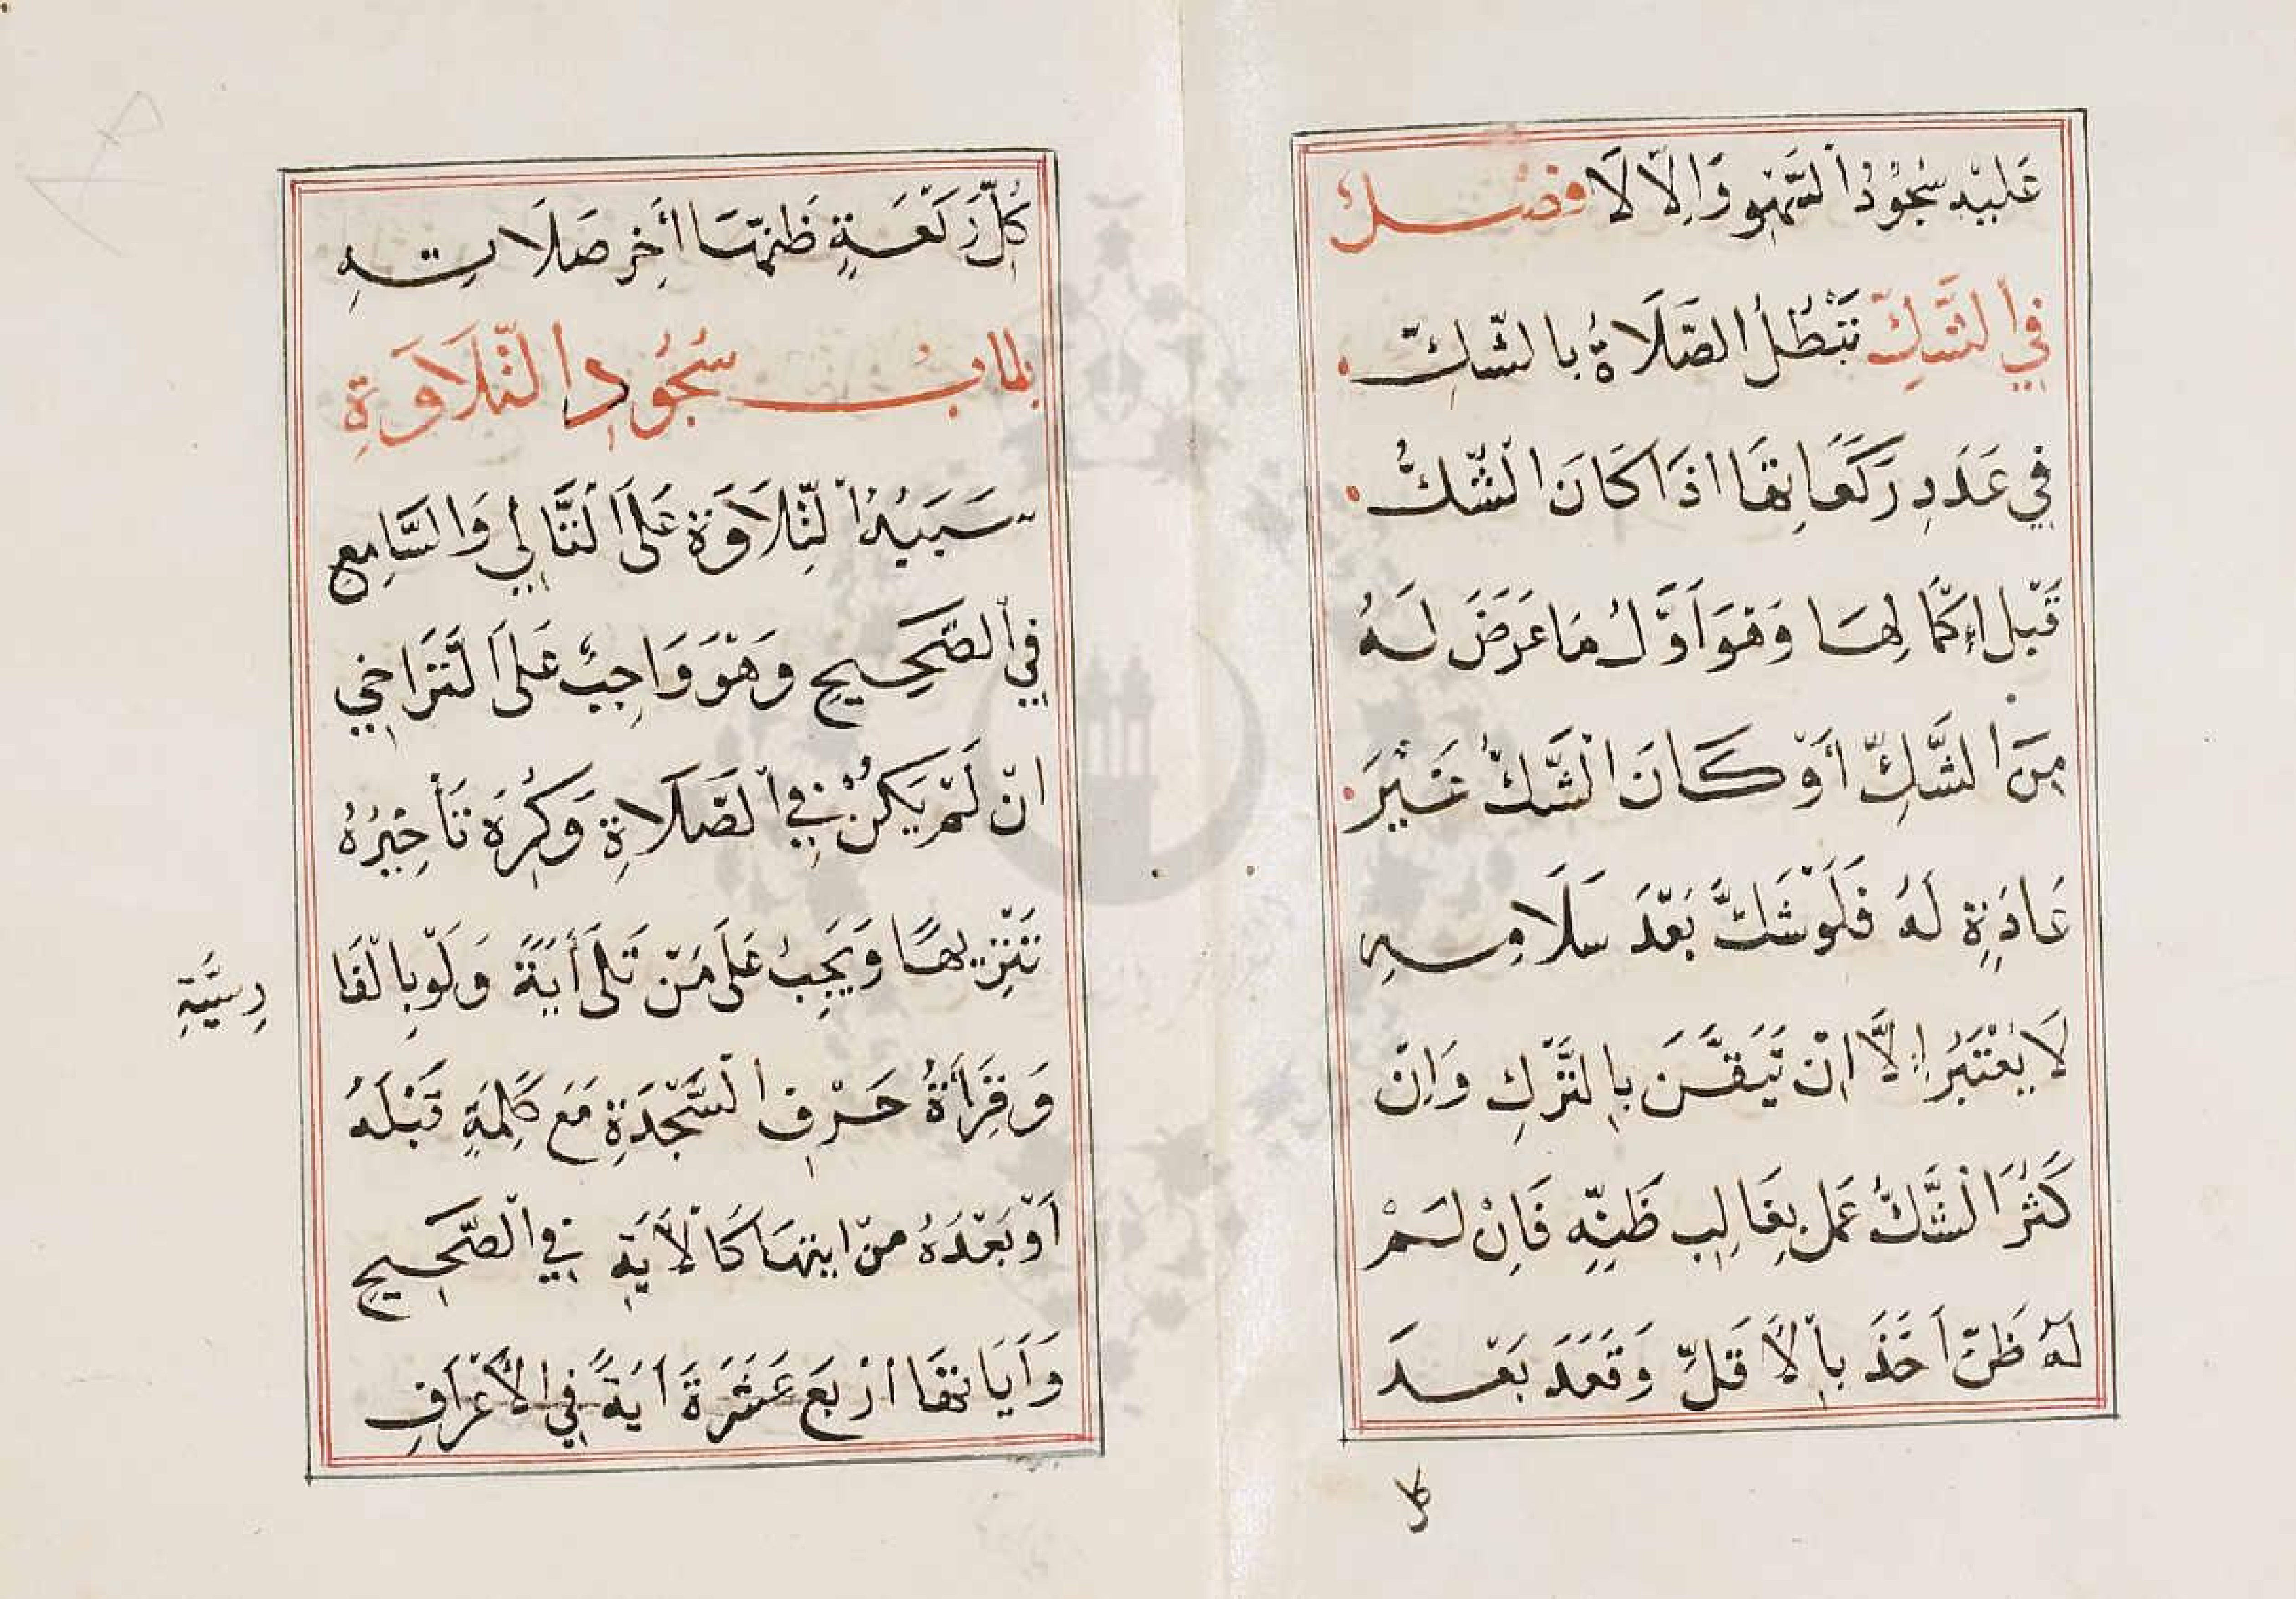 عَلَيْهِ سُجُودُ السَّهْوِ وَاِلَّا لَا فصْلٌ
فِي الشَّكِّ تَبْطُلُ الصَّلَاةُ بِالشَّكِّ
فِي عَدَدِ رَكَعَاتِهَا اذَا كَانَ الشَّكُّ
قَبْلَ اِكْمَالِهَا وَهُوَ اَوَّلُ مَا عَرَضَ لَهُ
مِنَ الشَّكِّ أَوْ كَانَ الشَّكُّ غَيْرَ
عَادَةٍ لَهُ فَلَوْ شَكَّ بَعْدَ سَلَامِهِ
لَا يُعْتَبَرُ اِلَّا اِنْ تَيَقَّنَ بِالتَّرْكِ وَاِنْ
كَثُرَ الشَّكُّ عَمِلَ بِغَالِبِ ظَنِّهِ فَاِنْ لَمْ
لَهُ ظَنٌّ اَخَذَ بِالْاَقَلِّ وَقَعَدَ بَعْدَ
كل
كُلِّ رَكْعَةٍ ظَنَّهَا اٰخِرَ صَلَاتِهِ
بابُ سُجُودِ التِّلَاوَةِ
سَبَبُهُ التِّلَاوَةُ عَلَى التَّالِي وَالسَّامِعِ
فِي الصَّحِيحِ وَهُوَ وَاجِبٌ عَلَى التَّرَاخِي
انْ لَمْ يَكُنْ فِي الصَّلَاةِ وَكُرِهَ تَأْخِيرُهُ
تَنْزِيهًا وَيَجِبُ عَلَى مَنْ تَلَى أَيَةً وَلَوْ بِالْفَا
رِسِيَّةِ
وَقِرَأَةُ حَرْفِ السَّجْدَةِ مَعَ كَلِمَةٍ قَبْلَهُ
اَوْ بَعْدَهُ منْ ايتهَا كَالْاَيَةِ فِي الصَّحِيحِ
وَاَيَاتهَا ارْبَعَ عَشَرَةَ اَيَةً فِي الْأَعْرَافِ